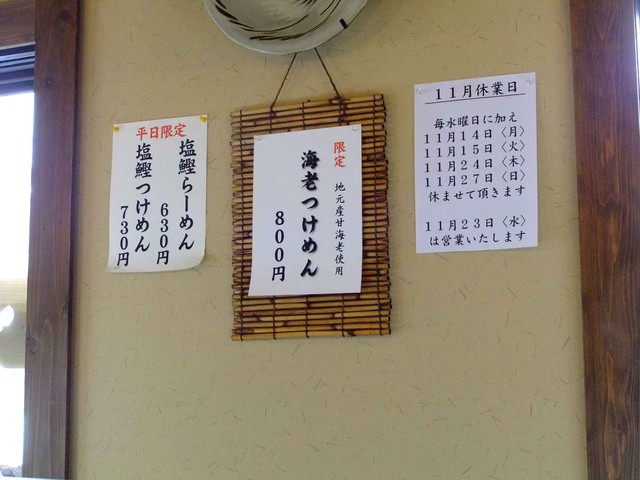 平日限定
塩鰹らーめん
630円
塩鰹つけめん
730円
限定
地元産甘海老使用
海老つけめん
800円
11月休業日
毎水曜日に加え
11月14日〈月〉
11月15日〈火〉
11月24日〈木〉
11月27日〈日〉
休ませて頂きます
11月23日〈水〉
は営業いたします